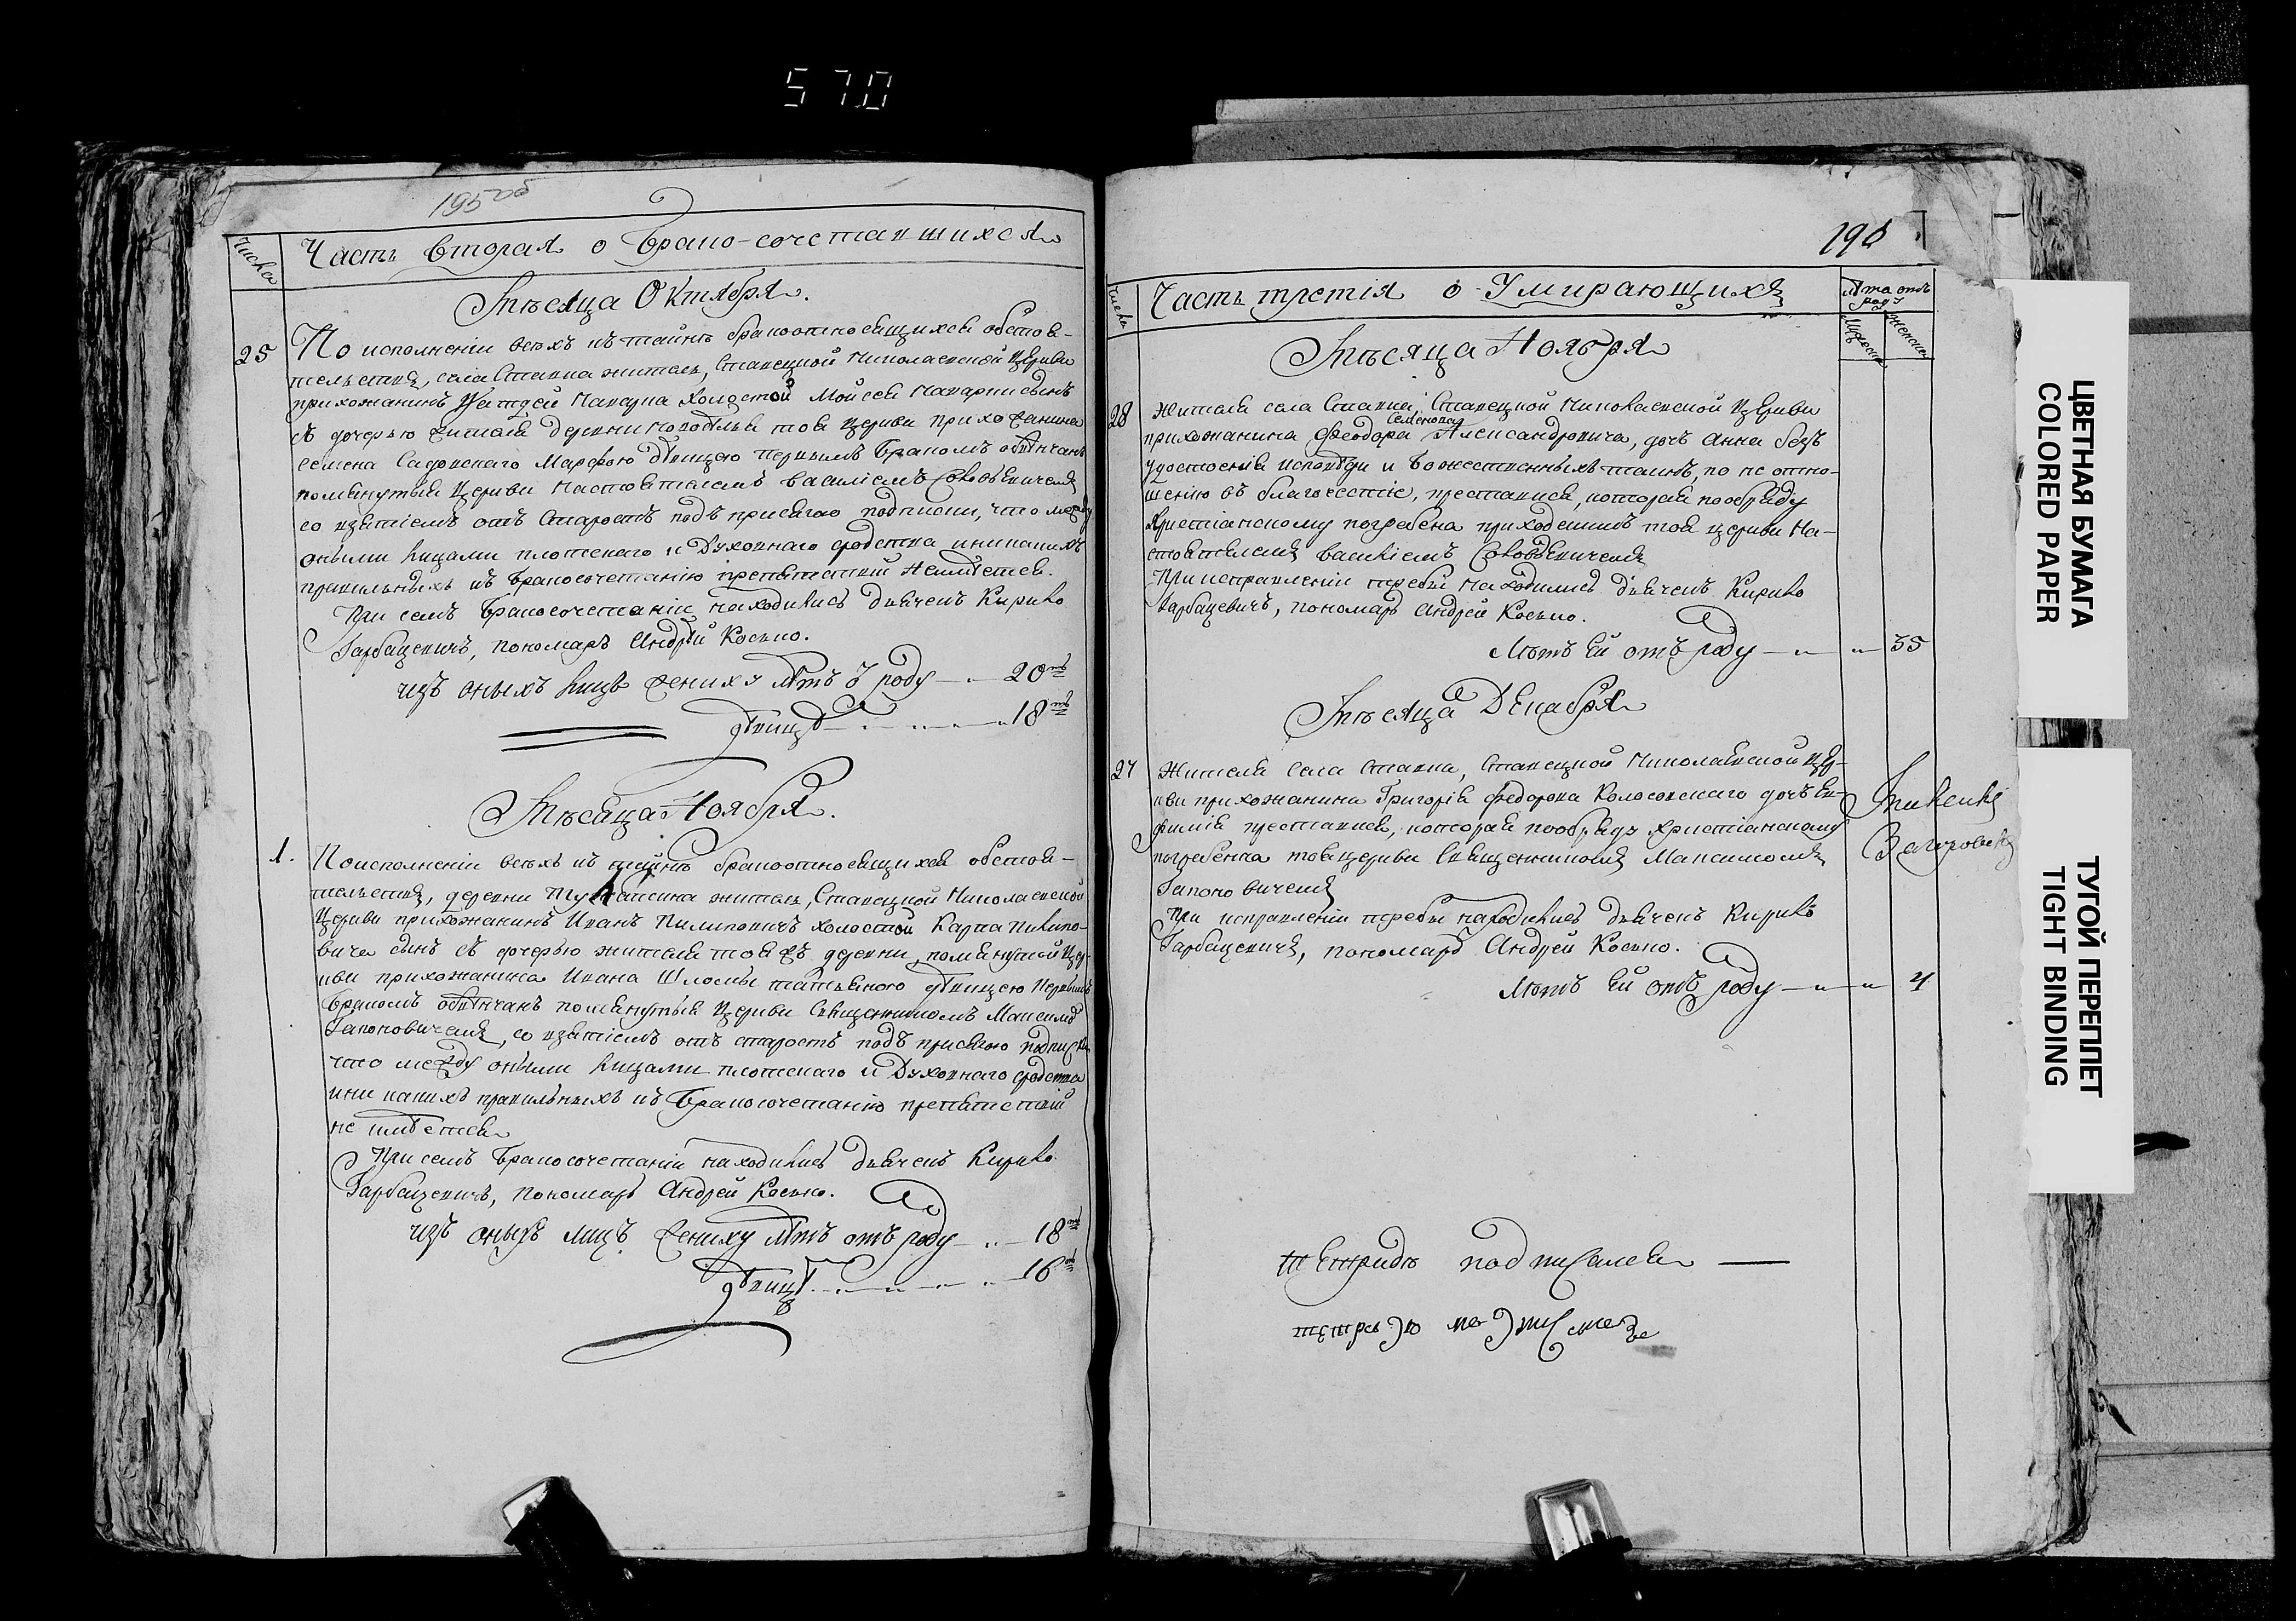 570
195 об
Числа
Часть вторая о Брако-сочетавшихся
Мѣсяца Октября.
25
По исполненіи всѣхъ къ тайнѣ бракоотносящихся обстоя-
тельствъ, села Ставка житель, Ставецкой Николаевской Церкви
прихожанинъ Макарка холостой Мойсей Макарки сынъ
съ дочерью жителя деревни тоя церкви прихожанина
Семена Садовскаго Марфою дѣвицею первымъ бракомъ обвѣнчанъ
помянутыя Церкви Настоятелемъ Василіемъ Соловьевичемъ
со взятіемъ отъ Старостъ подъ присягою подписки, что между
оными лицами плотскаго и Духовнаго сродства инникакихъ
правильныхъ къ бракосочетанію препятствій Неимѣется.
При семъ бракосочетаніи находились дьячекъ Кирило
Гарбацевичъ, пономарь Андрей Косько.
изъ оныхъ лицъ жениху лѣтъ ѿ роду 20ть
дѣвицѣ 18ть
Мѣсяца Ноября.
1.
Поисполненіи всѣхъ къ тайнѣ бракоотносящихся обстоя-
тельствъ, деревни житель, Ставецкой Николаевской
Церкви прихожанинъ Иванъ Пилиповичъ холостой Карпа Пилипо-
вича сынъ съ дочерью жителя тояжъ деревни, помянутой Цер-
кви прихожанина Ивана Шломы татьяною дѣвицею Первымъ
бракомъ обвѣнчанъ помянутыя Церкви Священникомъ Максимомъ
Гапоновичемъ, со взятіемъ отъ старостъ подъ присягою подписки
что между оными лицами плотскаго и Духовнаго сродства
инни какихъ правильныхъ къ бракосочетанію препятствій
не имѣется
При семъ бракосочетаніи находились дьячекъ Кирило
Гарбацевичъ, пономарь Андрей Косько.
изъ оныхъ лицъ жениху лѣтъ отъ роду 18ть
дѣвицѣ 16ть
196
Числа
Часть третія о Умирающихъ
Лѣта отъ роду
Мужеска
женска
Мѣсяца Ноября
28
Жителя села Ставка, Ставецкой Николаевской Церкви
Семенова
прихожанина Феодора Александровича, дочь Анна безъ
удостоенія исповѣди и Божественныхъ таинъ, по не отно-
шенію въ благочестіе, преставися, которая пообряду
Христіанскому погребена приходскимъ тоя церкви На-
стоятелемъ Василіемъ Соловьевичемъ
При исправленіи требы находились дьячекъ Кирило
Гарбацевичъ, пономарь Андрей Косько.
Лѣтъ Ей отъ роду 35
Мѣсяца Декабря
27
Жителя Села Ставка, Ставецкой Николаевской Цер-
кви прихожанина Григорія Федорова Колосовскаго дочь Ев-
фимія преставися, которая пообряду Христіанскому
погребенна тоя церкви Священникомъ Максимомъ
Гапоновичемъ
При исправленіи требы находились дьячекъ Кирило
Гарбацевичъ, пономарь Андрей Косько.
Лѣтъ Ей отъ роду 4
подписался
ЦВЕТНАЯ БУМАГА
COLORED PAPER
ТУГОЙ ПЕРЕПЛЕТ
TIGHT BINDING